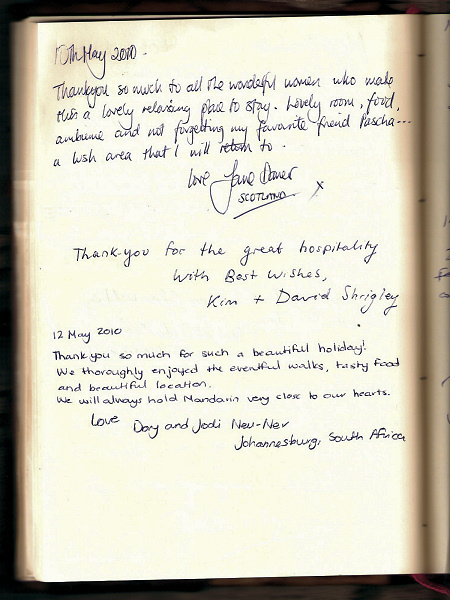 10th May 2010.
Thankyou so much to all the wonderful women who make
this a lovely relaxing place to stay. Lovely room, food,
ambience and not forgetting my favourite friend Pascha...
a lush area that I will return to.
love Jane
SCOTLAND x
Thank-you for the great hospitality
With Best Wishes,
Kim + David Shrigley
12 May 2010
Thankyou so much for such a beautiful holiday!
We thoroughly enjoyed the eventful walks, tasty food
and beautiful location.
We will always hold Mandarin very close to our hearts.
Love Dory and Jodi Neu-Ner
Johannesburg, South Africa